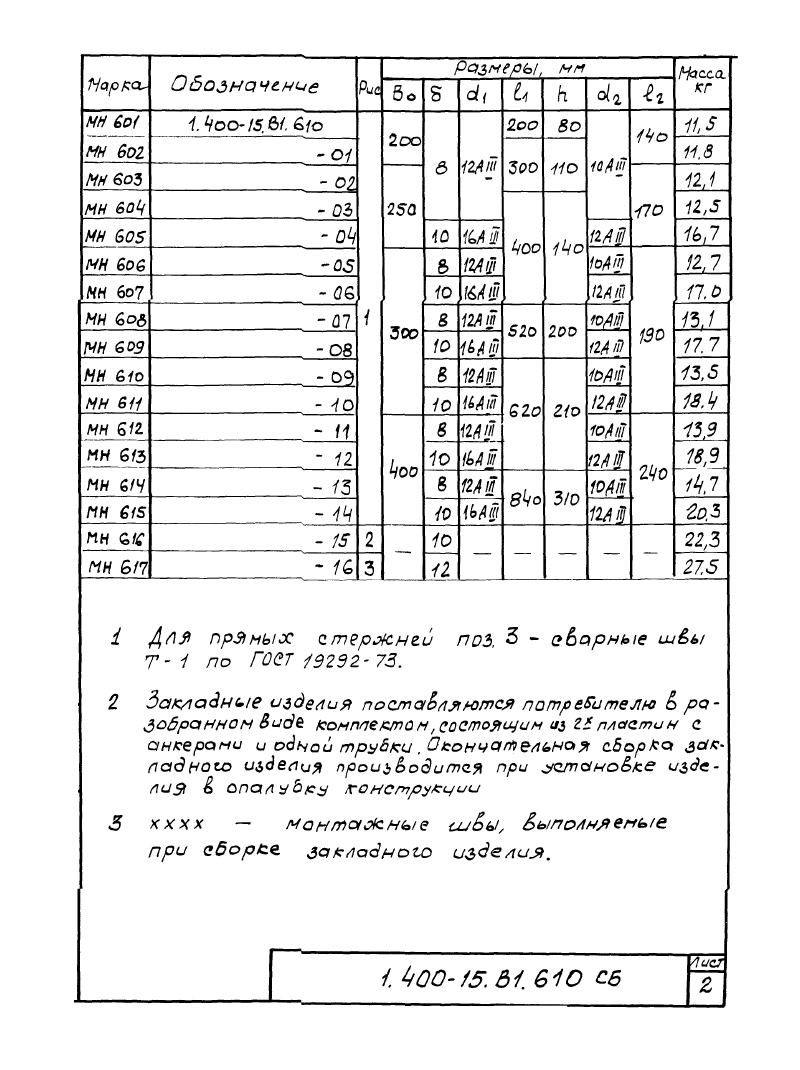 Размеры, мм
Марка Обозначение Рис Во δ d1 l1 h d2 l2 Масса кг
МН 601 1.400-15.В1.610 1 200 8 12АIII 200 80 10АIII 140 11,5
МН 602 - 01 300 110 11.8
МН 603 - 02 250 170 12,1
МН 604 - 03 400 140 12,5
МН 605 - 04 10 16АIII 12АIII 16,7
МН 606 - 05 300 8 12АIII 10АIII 190 12,7
МН 607 - 06 10 16АIII 12АIII 17.0
МН 608 - 07 8 12АIII 520 200 10АIII 13,1
МН 609 - 08 10 16АIII 12АIII 17.7
МН 610 - 09 8 12АIII 620 210 10АIII 13,5
МН 611 - 10 10 16АIII 12АIII 18.4
МН 612 - 11 400 8 12АIII 10АIII 240 13,9
МН 613 - 12 10 16АIII 12АIII 18,9
МН 614 - 13 8 12АIII 840 310 10АIII 14,7
МН 615 - 14 10 16АIII 12АIII 20,3
МН 616 - 15 2 — 10 — — — — — 22,3
МН 617 - 16 3 12 27.5
1 Для прямых стержней поз. 3 - сварные швы
Т-1 по ГОСТ 19292-73.
2 Закладные изделия поставляются потребителю в ра-
зобранном виде комплектом, состоящим из 2х пластин с
анкерами и одной трубки. Окончательная сборка зак-
ладного изделия производится при установке изде-
лия в опалубку конструкции
3 хххх — монтажные швы, выполняемые
при сборке закладного изделия.
1.400-15.В1.610 СБ
Лист
2